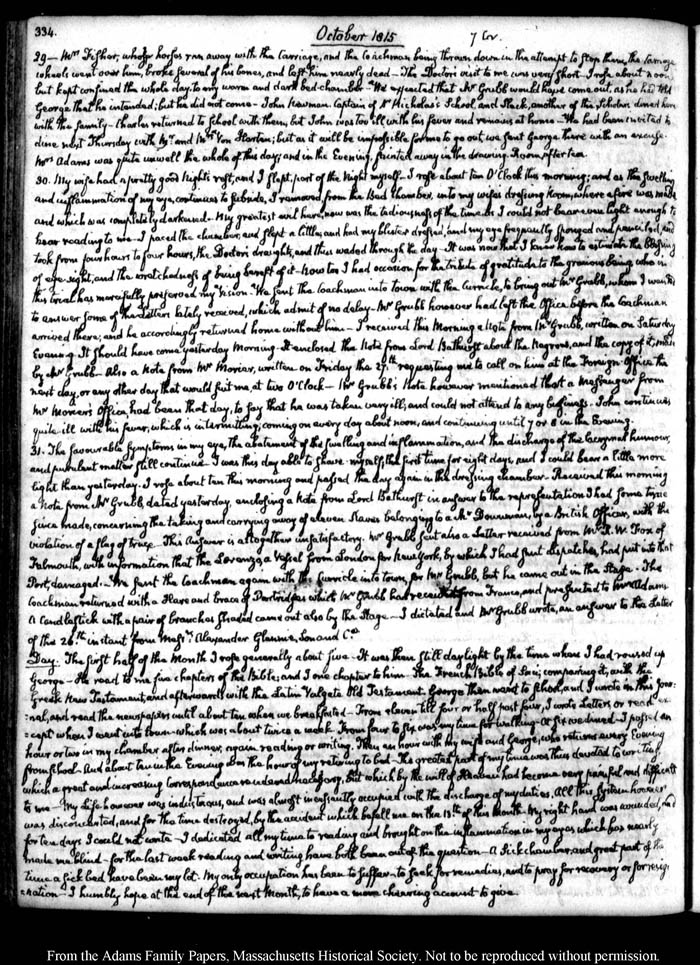 334.
October 1815
7 Cr.
29 — Mrs Fisher, whose horses ran away with the Carriage, and the Coachman being thrown down in the attempt to stop them, the carriage
wheels went over him, broke several of his bones, and left him nearly dead — The Doctor's visit to me was very short. I rose about noon
but kept confined the whole day, to my warm and dark bed-chamber — We expected that Mr Grubb would have come out, as he had told
George that he intended; but he did not come — John Newman Captain of Dr Nicholas's School, and Slack, another of the Scholars dined here
with the family — Charles returned to School with them, but John was too ill with his fever and remains at home — We had been invited to
dine next Thursday with Mr and Mrs Von Harten; but as it will be impossible for me to go out we sent George there with an excuse.
Mrs Adams was quite unwell the whole of this day; and in the Evening, fainted away in the drawing Room, after tea.
30. My wife had a pretty good Night's rest, and I slept, part of the Night myself. I rose about ten O'Clock this morning; and as the swelling
and inflammation of my eye, continues to subside, I removed from the Bed Chamber, into my wife's dressing Room, where a fire was made
and which was completely darkened. My greatest evil here, now was the tediousness of the time as I could not bear even light enough to
hear reading to me — I paced the chamber, and slept a little, and had my blister dressed, and my eye frequently sponged and
took from four hours to four hours, the Doctor's draughts, and thus waded through the day — It was now that I knew how to estimate the blessing
of eye-sight, and the wretchedness of being bereft of it. Now too I had occasion for the tribute of gratitude to the gracious being who in
this trial has mercifully preserved my Vision. We sent the Coachman into town with the Curricle, to bring out Mr Grubb, whom I wanted
to answer some of the Letters lately received, which admit of no delay — Mr Grubb however had left the Office before the Coachman
arrived there; and he accordingly returned home without him — I received this Morning a Note from Mr Grubb, written on Saturday
Evening. It should have come yesterday Morning. It enclosed the Note from Lord Bathurst about the Negroes, and the copy of it, made
by Mr Grubb — Also a Note from Mr Morier, written on Friday the 27th requesting me to call on him at the Foreign Office the
next day, or any other day that would suit me, at two O'Clock — Mr Grubb's Note however mentioned that a Messenger from
Mr Morier's Office, had been that day, to say that he was taken very ill, and could not attend to any business. John continues
quite ill with his fever, which is intermitting, coming on every day about noon, and continuing until 7 or 8 in the Evening.
31. The favourable Symptoms in my eye, the abatement of the swelling and inflammation, and the discharge of the lacrymal humour,
and purulent matter still continue. I was this day able to shave myself, the first time for eight days, and I could bear a little more
light than yesterday. I rose about ten this morning and passed the day again in the dressing chamber. Received this morning
a note from Mr Grubb, dated yesterday, enclosing a Note from Lord Bathurst in answer to the representation I had some time
since made, concerning the taking and carrying away of eleven Slaves belonging to a Mr Downman, by a British Officer, with the
violation of a flag of truce. This Answer is altogether unsatisfactory. Mr Grubb sent also a Letter received from Mr R. W. Fox of
Falmouth, with information that the Lorenzo, a Vessel from London for New York, by which I had sent dispatches, had put into that
Port, damaged. — We sent the Coachman again with the Curricle into town, for Mr Grubb, but he came out in the Stage. The
Coachman returned with a Hare and brace of Partridges which Mr Grubb had received from France, and presented to
A Candlestick with a pair of branches shaded came out also by the Stage — I dictated and Mr Grubb wrote, an answer to the Letter
of the 26th instant from Messrs Alexander Glennie, Son and Co.
Day. The first half of the Month I rose generally about five. It was then still daylight by the time where I had roused up
George — He read to me five chapters of the Bible; and I one chapter to him. The French Bible of Saci; comparing it, with the
Greek New Testament, and afterwards with the Latin Vulgate Old Testament. George then went to School, and I wrote in this jour-
-nal, and read the newspapers until about ten when we breakfasted — From eleven till four or half past four, I wrote Letters or read ex-
-cept when I went into town — which was about twice a week. From four to six was my time for walking. At six we dined — I passed an
hour or two in my chamber after dinner, again reading or writing. Then an hour with my wife and George, who returns every Evening
from School. And about ten in the Evening was the hour of my retiring to bed — The greatest part of my time was thus devoted to writing
which a great and increasing correspondence rendered necessary, but which by the will of Heaven had become very painful and difficult
to me — My life however was industrious, and was almost incessantly occupied with the discharge of my duties. All this System however
was disconcerted, and for the time destroyed, by the accident which befall me on the 13th of this Month. My right hand was wounded, and
for ten days I could not write — I dedicated all my time to reading and brought on the inflammation in my eyes which has nearly
made me blind — for the last week reading and writing have both been out of the question — A sick chamber, and great part of the
time a sick bed have been my lot. My only occupation has been to suffer — to seek for remedies, and to pray for recovery or for resig-
-nation — I humbly hope at the end of the next Month, to have a more cheering account to give.
From the Adams Family Papers, Massachusetts Historical Society. Not to be reproduced without permission.